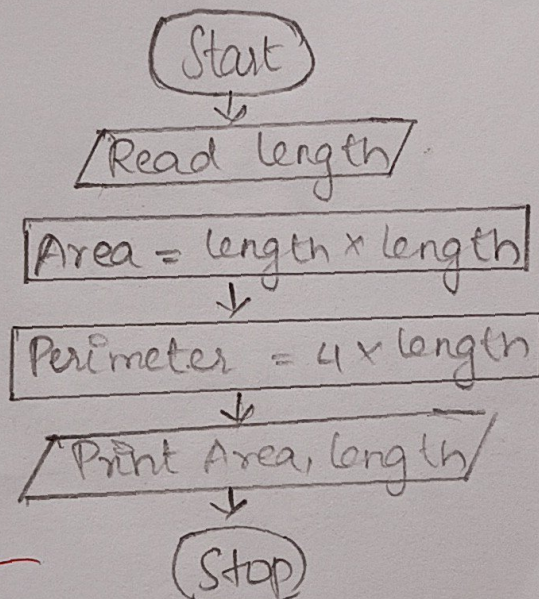 Start
Read length
Area = length x length
Perimeter = 4 x length
Print Area, length
Stop